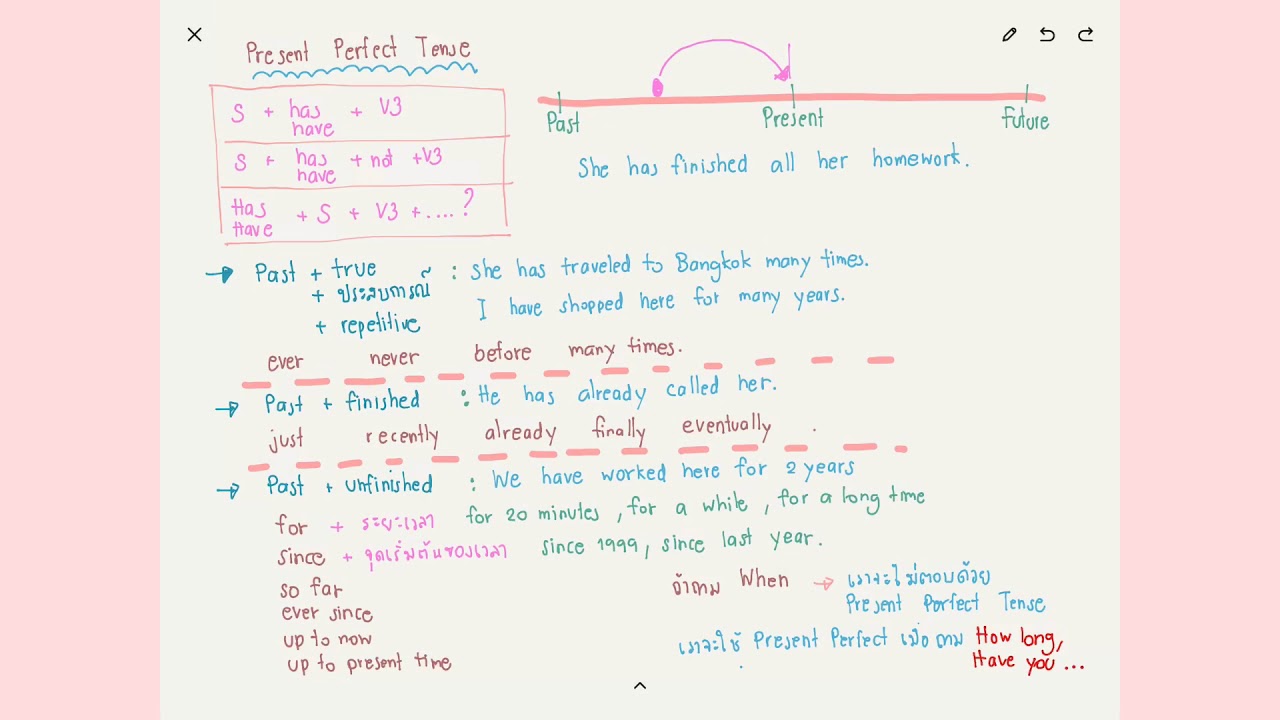 Present Perfect Tense
S + has + V3
have
S + has + not + V3
have
Has + S + V3 + .... ?
Have
Past Present Future
She has finished all her homework.
→ Past + true : She has traveled to Bangkok many times.
+ ประสบการณ์
I have shopped here for many years.
+ repetitive
ever never before many times.
→ Past + finished : He has already called her.
just recently already finally eventually .
→ Past + unfinished : We have worked here for 2 years
for + ระยะเวลา for 20 minutes , for a while , for a long time
since + จุดเริ่มต้นของเวลา since 1999, since last year.
so far
ever since
up to now
up to present time
ถ้าถาม When → เราจะไม่ตอบด้วย
Present Perfect Tense
เราจะใช้ Present Perfect เมื่อถาม How long,
Have you ...